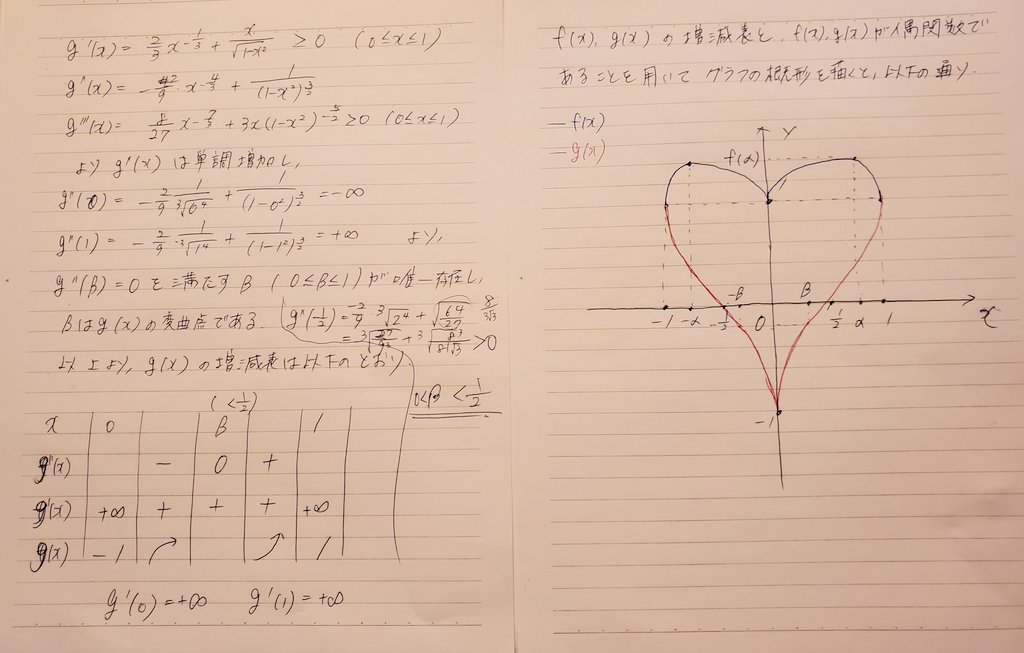 g'(x) = 2/3 x^{-1/3} + x/√(1-x²) ≥ 0 (0≤x≤1)
g''(x) = -2/9 · x^{-4/3} + 1/(1-x²)^{3/2}
g'''(x) = 8/27 x^{-7/3} + 3x(1-x²)^{-5/2} ≥ 0 (0≤x≤1)
より g''(x) は単調増加し,
g''(0) = -2/9 · 1/∛0⁴ + 1/(1-0²)^{3/2} = -∞
g''(1) = -2/9 · 1/∛1⁴ + 1/(1-1²)^{3/2} = +∞ より,
g''(β) = 0 を満たす β (0≤β≤1) が唯一存在し,
βはg(x)の変曲点である.
g''(1/2) = -2/9 · ∛2⁴ + √(64/27) 8/3√3
>0
以上より, g(x) の増減表は以下のとおり
0<β<1/2
(<1/2)
x 0 β 1
g''(x) - 0 +
g'(x) +∞ + + + +∞
g(x) -1 1
g'(0) = +∞ g'(1) = +∞
f(x), g(x) の増減表と, f(x), g(x) が偶関数で
あることを用いて グラフの概形を描くと, 以下の通り.
— f(x)
— g(x)
y
f(α)
-1 -α -1/2 -β 0 β 1/2 α 1 x
-1